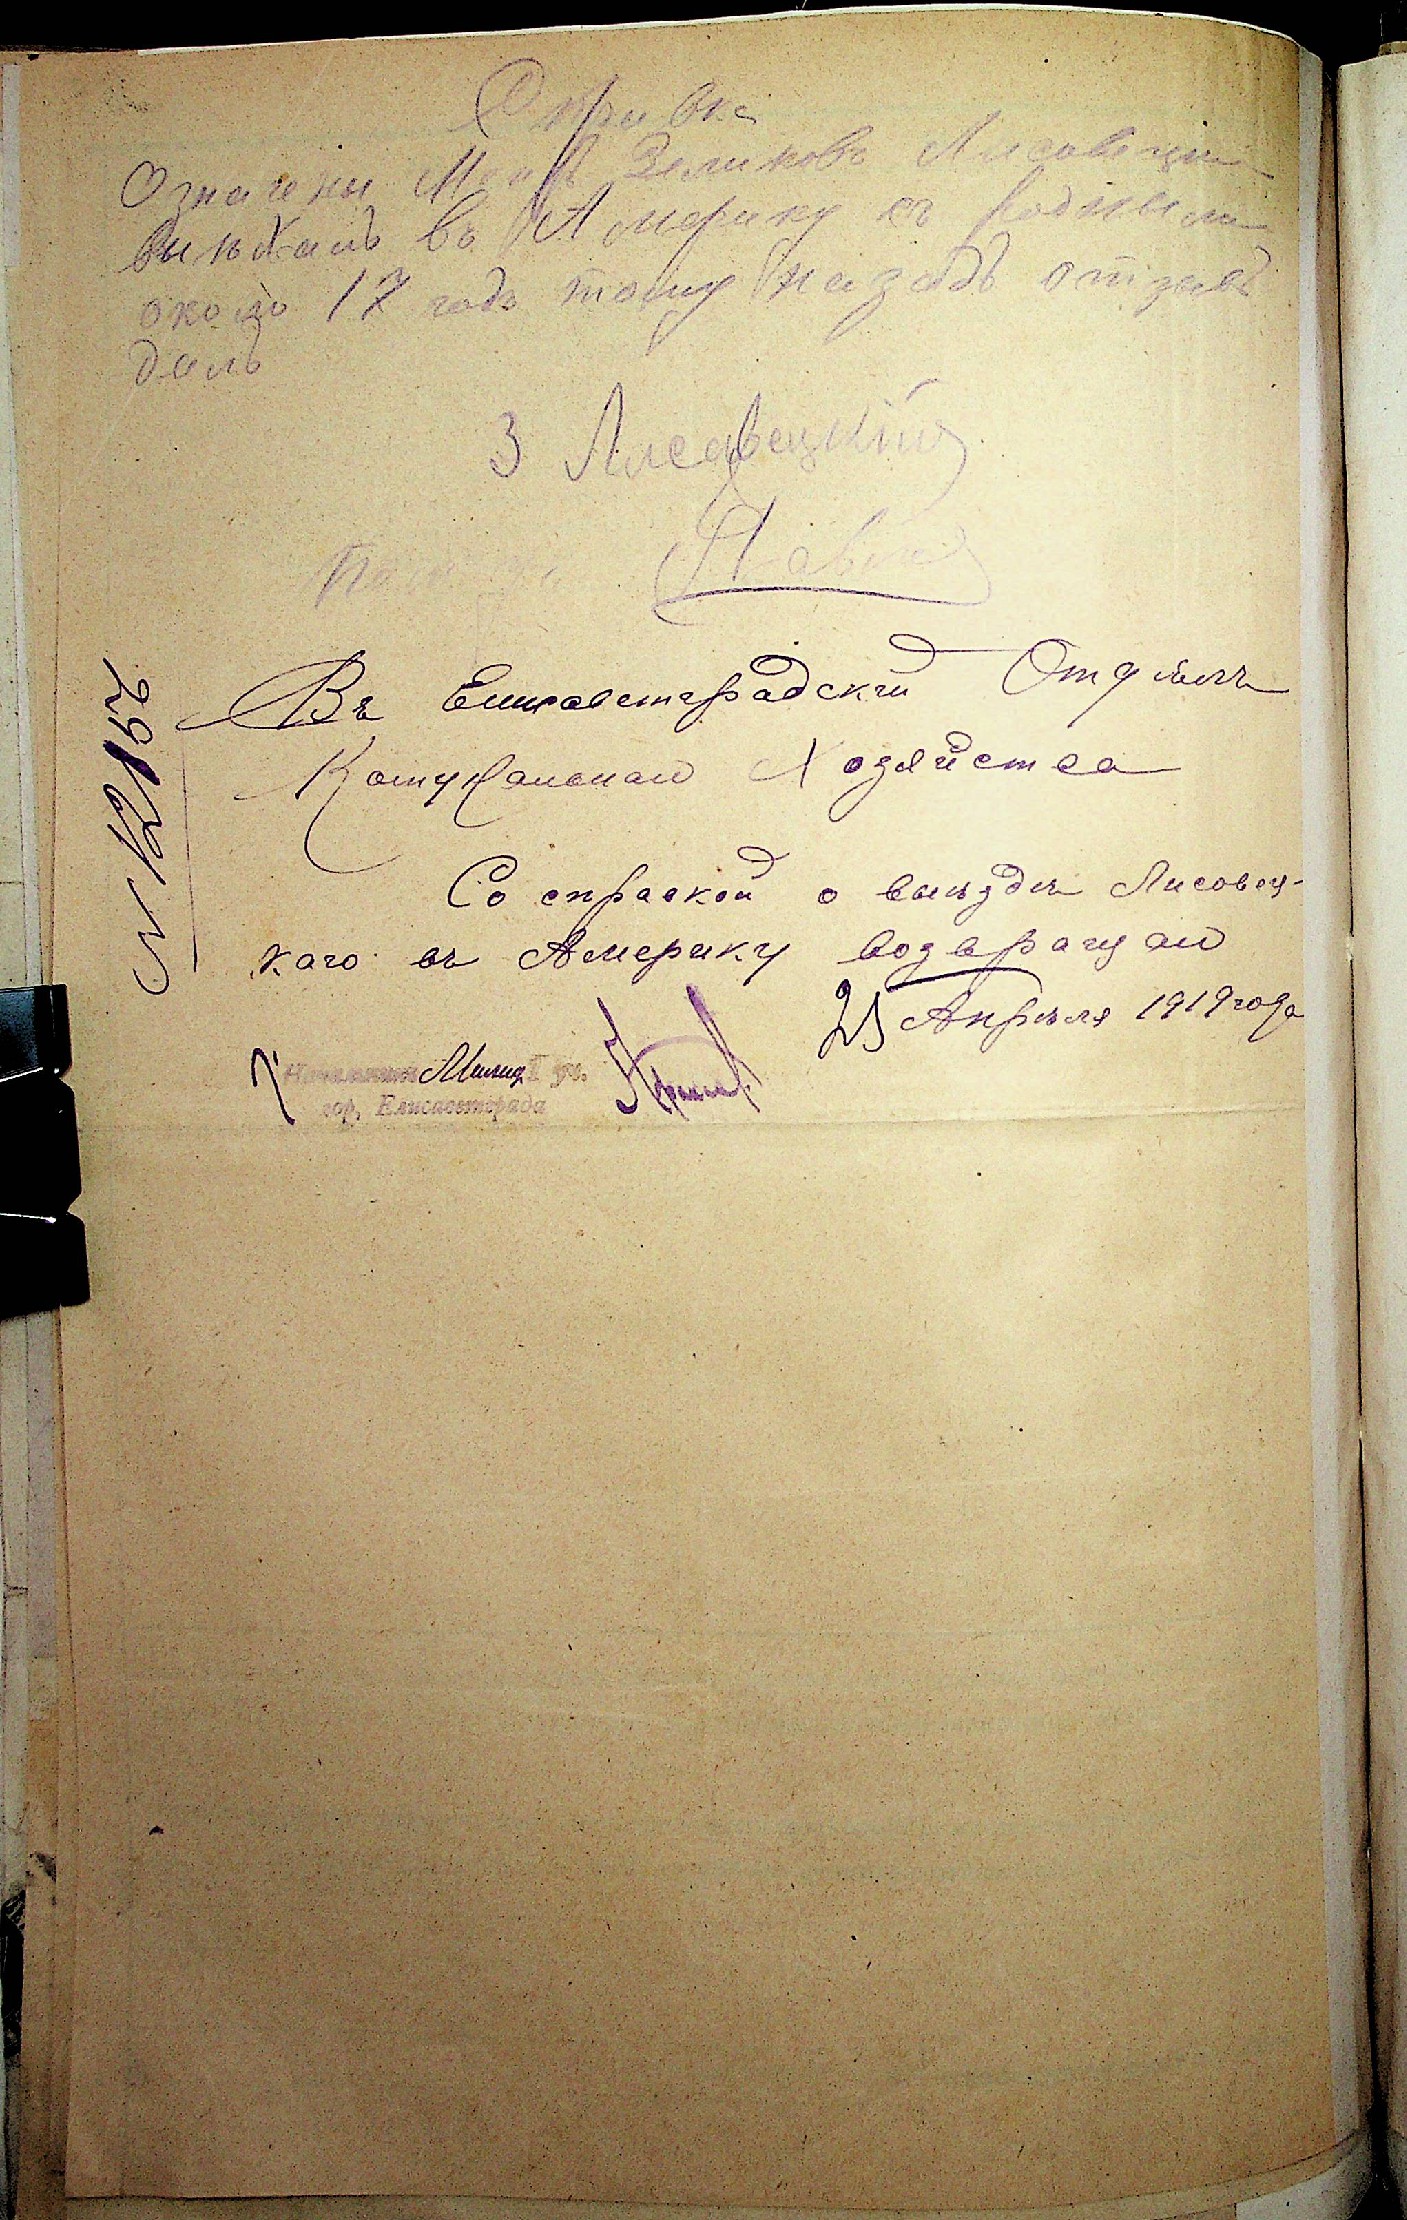 Справка
Означены Зеликовъ Лисовецки
выѣхалъ въ Америку съ родными
около 17 годъ тому назадъ отзывъ
далъ
З Лисовецкій
Въ Елисаветградский Отдѣлъ
Комунальнаго Хозяйства
Со справкой о выѣзде Лисовец-
каго въ Америку возвращаю
25 Апрѣля 1919 года
Начальник Милиц. уч.
гор. Елисаветграда
№ 12162